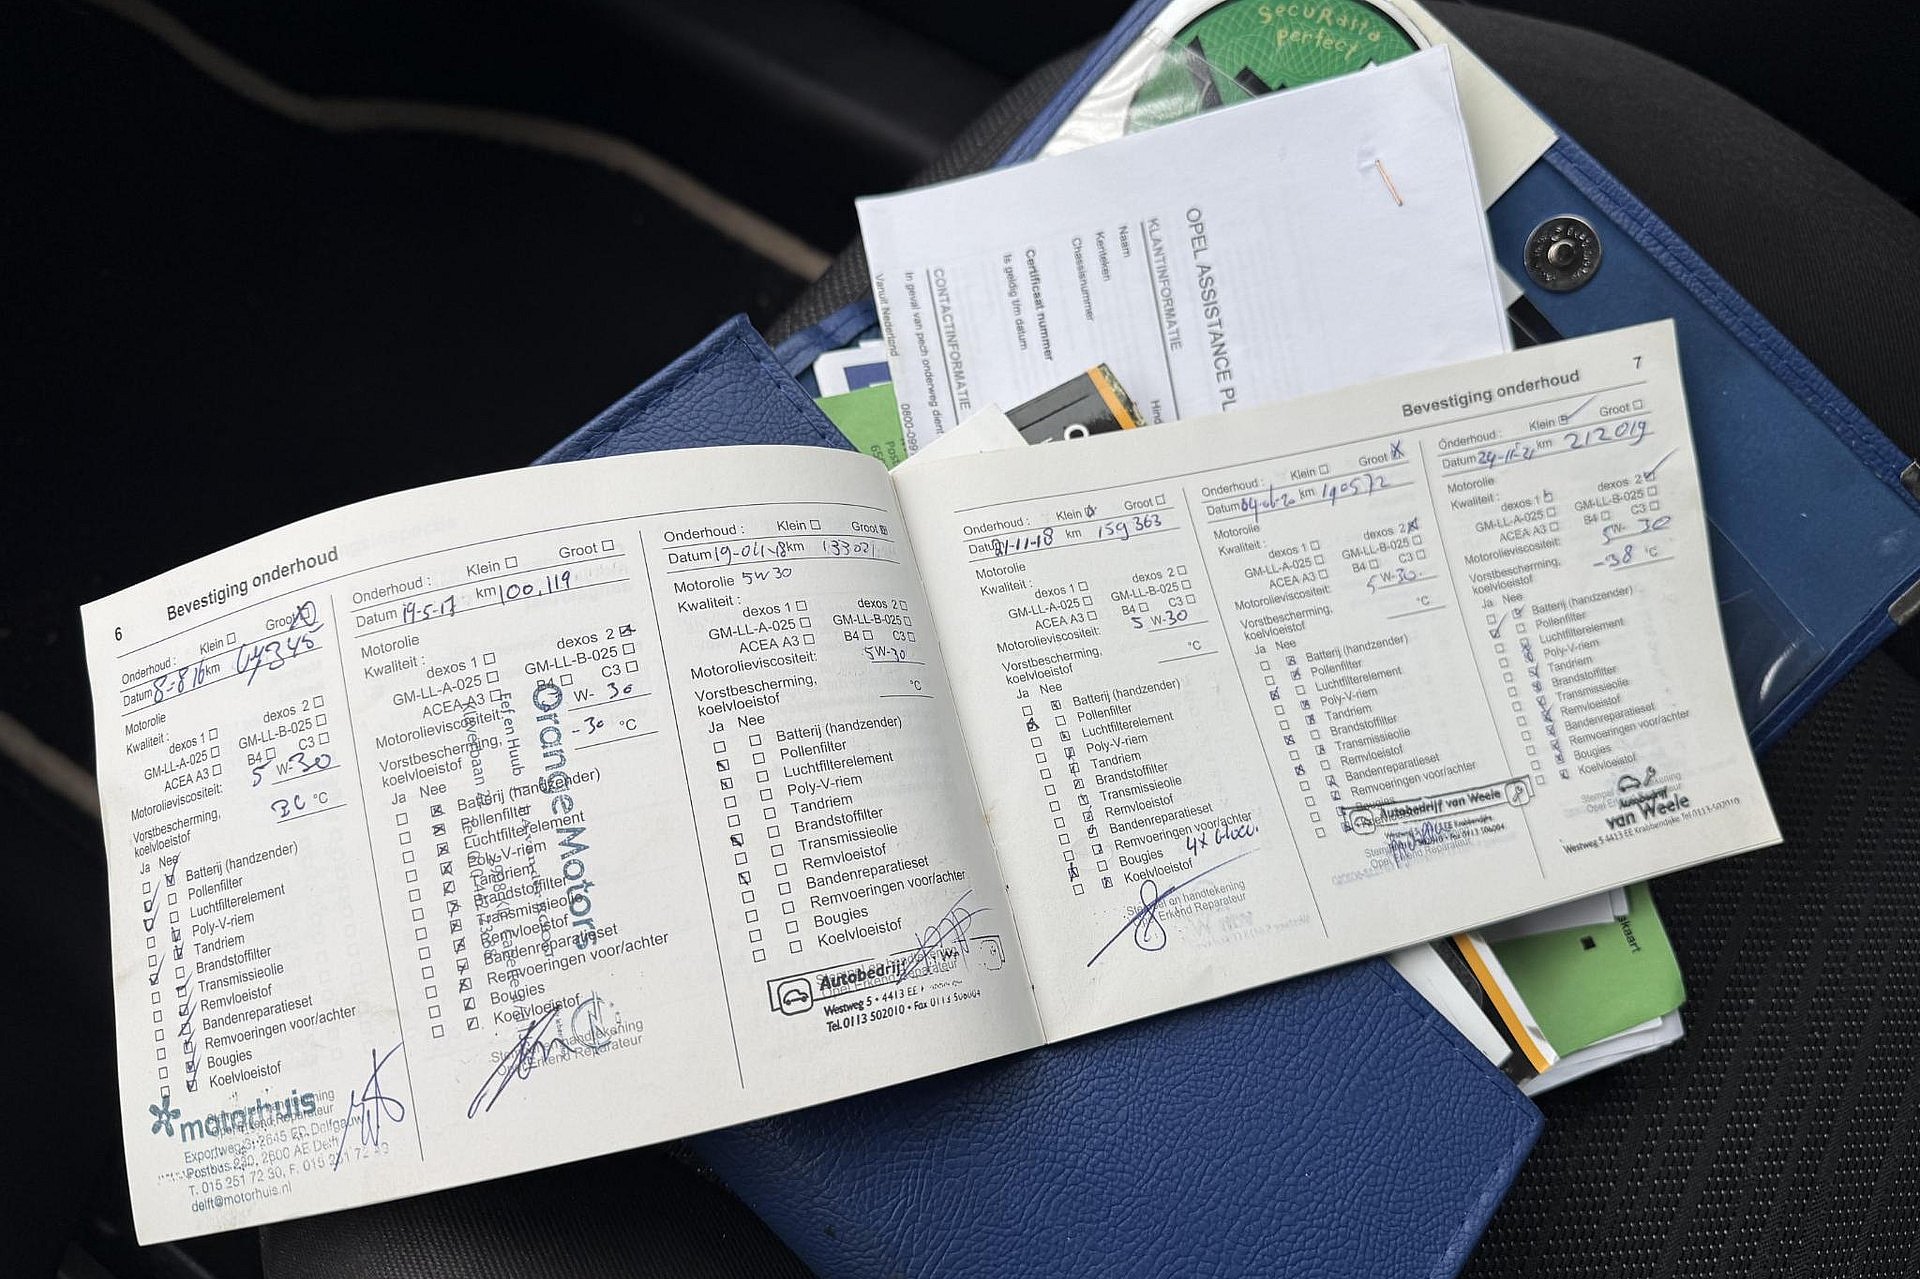 SecuRasta
perfect
OPEL ASSISTANCE PL
KLANTINFORMATIE
Naam
Kenteken
Chassisnummer
Certificaat nummer
Is geldig t/m datum
CONTACTINFORMATIE
In geval van pech onderweg dient
Vanuit Nederland
0800-099
6
Bevestiging onderhoud
Onderhoud : Klein Groot
Datum 8-8-16 km
Motorolie
Kwaliteit : dexos 1 dexos 2
GM-LL-A-025 GM-LL-B-025
ACEA A3 B4 C3
Motorolieviscositeit: 5 W-30
Vorstbescherming,
koelvloeistof 30 °C
Ja Nee
Batterij (handzender)
Pollenfilter
Luchtfilterelement
Poly-V-riem
Tandriem
Brandstoffilter
Transmissieolie
Remvloeistof
Bandenreparatieset
Remvoeringen voor/achter
Bougies
Koelvloeistof
motorhuis
Exportweg 3, 2645 ED Delfgauw
Postbus 230, 2600 AE Delft
T. 015 251 72 30, F. 015 251 72
delft@motorhuis.nl
Onderhoud : Klein Groot
Datum 19-5-17 km 100.119
Motorolie
Kwaliteit : dexos 1 dexos 2
GM-LL-A-025 GM-LL-B-025
ACEA A3 B4 C3
Motorolieviscositeit: W- 30
Vorstbescherming,
koelvloeistof -30 °C
Ja Nee
Batterij (handzender)
Pollenfilter
Luchtfilterelement
Poly-V-riem
Tandriem
Brandstoffilter
Transmissieolie
Remvloeistof
Bandenreparatieset
Remvoeringen voor/achter
Bougies
Koelvloeistof
Stempel en handtekening
Opel Erkend Reparateur
Orange Motors
Onderhoud : Klein Groot
Datum 19-04-18 km 13302
Motorolie 5W30
Kwaliteit :
dexos 1 dexos 2
GM-LL-A-025 GM-LL-B-025
ACEA A3 B4 C3
Motorolieviscositeit: 5W-30
Vorstbescherming,
koelvloeistof °C
Ja Nee
Batterij (handzender)
Pollenfilter
Luchtfilterelement
Poly-V-riem
Tandriem
Brandstoffilter
Transmissieolie
Remvloeistof
Bandenreparatieset
Remvoeringen voor/achter
Bougies
Koelvloeistof
Autobedrijf
Westweg 5 • 4413 EE
Tel. 0113 502010 • Fax 0113 506004
Bevestiging onderhoud
7
Onderhoud : Klein Groot
Datum 21-11-18 km 159363
Motorolie
Kwaliteit : dexos 1 dexos 2
GM-LL-A-025 GM-LL-B-025
ACEA A3 B4 C3
Motorolieviscositeit: 5 W-30
Vorstbescherming,
koelvloeistof °C
Ja Nee
Batterij (handzender)
Pollenfilter
Luchtfilterelement
Poly-V-riem
Tandriem
Brandstoffilter
Transmissieolie
Remvloeistof
Bandenreparatieset
Remvoeringen voor/achter
Bougies 4x
Koelvloeistof
Stempel en handtekening
Erkend Reparateur
Onderhoud : Klein Groot
Datum 04-06-20 km 190572
Motorolie
Kwaliteit : dexos 1 dexos 2
GM-LL-A-025 GM-LL-B-025
ACEA A3 B4 C3
Motorolieviscositeit: 5 W-30
Vorstbescherming,
koelvloeistof °C
Ja Nee
Batterij (handzender)
Pollenfilter
Luchtfilterelement
Poly-V-riem
Tandriem
Brandstoffilter
Transmissieolie
Remvloeistof
Bandenreparatieset
Remvoeringen voor/achter
Bougies
Autobedrijf van Weele
Onderhoud : Klein Groot
Datum 24-11-21 km 212019
Motorolie
Kwaliteit : dexos 1 dexos 2
GM-LL-A-025 GM-LL-B-025
ACEA A3 B4 C3
Motorolieviscositeit: 5W- 30
Vorstbescherming,
koelvloeistof -38 °C
Ja Nee
Batterij (handzender)
Pollenfilter
Luchtfilterelement
Poly-V-riem
Tandriem
Brandstoffilter
Transmissieolie
Remvloeistof
Bandenreparatieset
Remvoeringen voor/achter
Bougies
Koelvloeistof
Autobedrijf
van Weele
Westweg 5 4413 EE Krabbendijke Tel 0113-502010